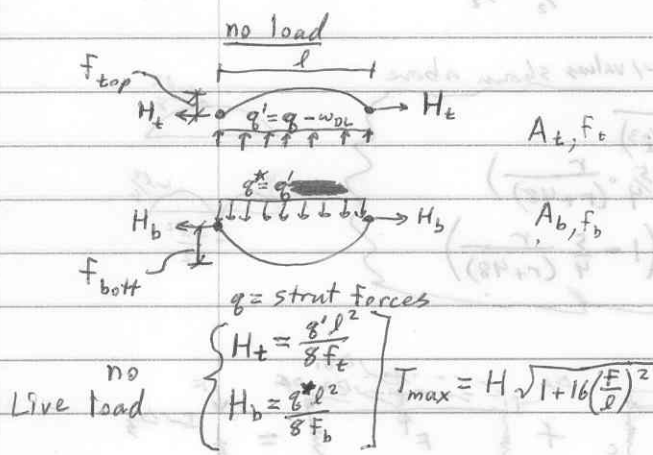 no load
l
f top
H_t H_t
q' = q - ω_DL
A_t, f_t
q* = q'
H_b H_b
A_b, f_b
f bott
q = strut forces
no Live load
H_t = q' l² / 8 f_t
H_b = q* l² / 8 f_b
T_max = H √1+16(f/l)²